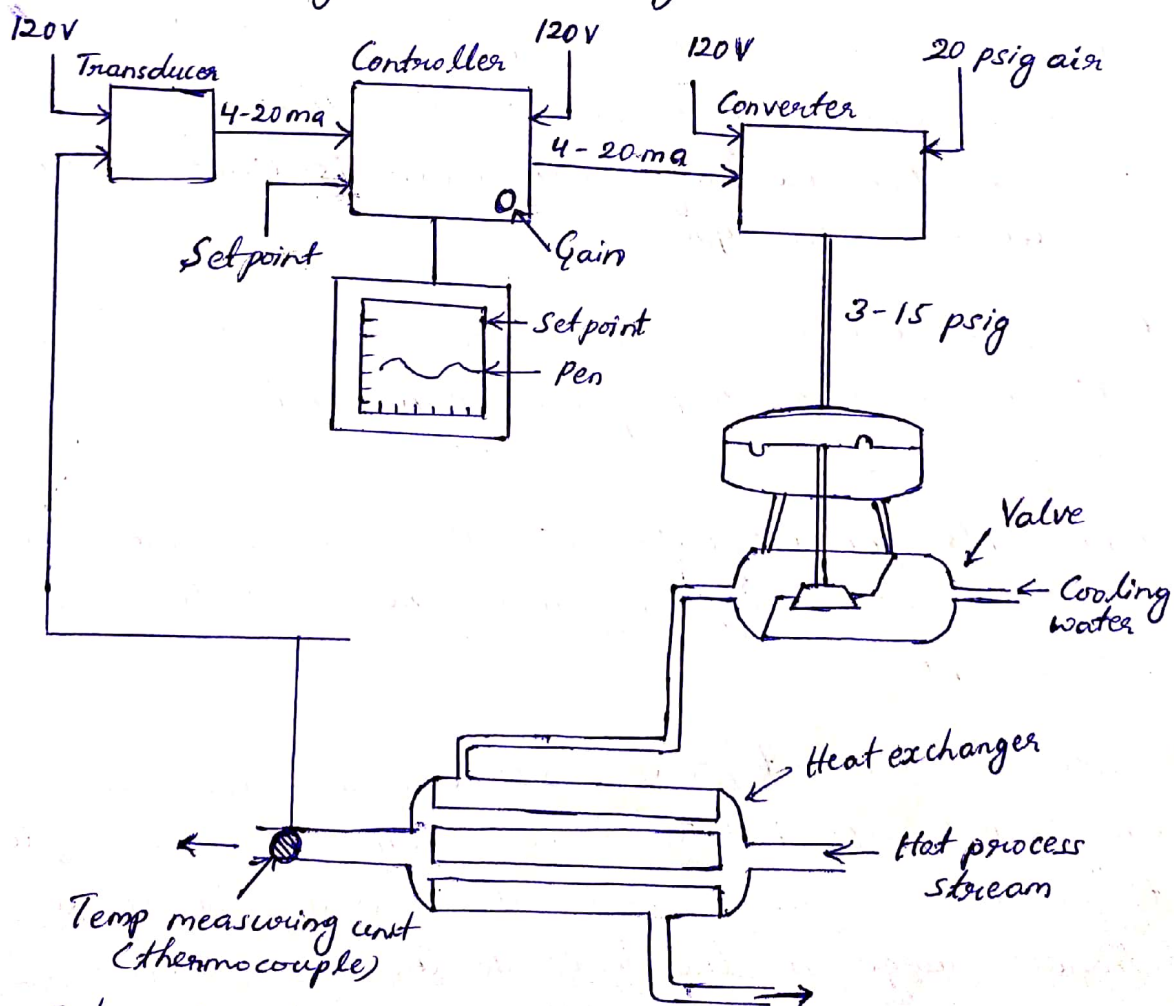 120V
Transducer
Controller
120V
120V
20 psig air
Converter
4-20ma
4-20ma
Setpoint
Gain
Setpoint
Pen
3-15 psig
Valve
Cooling
water
Heat exchanger
Hot process
stream
Temp measuring unit
(thermocouple)